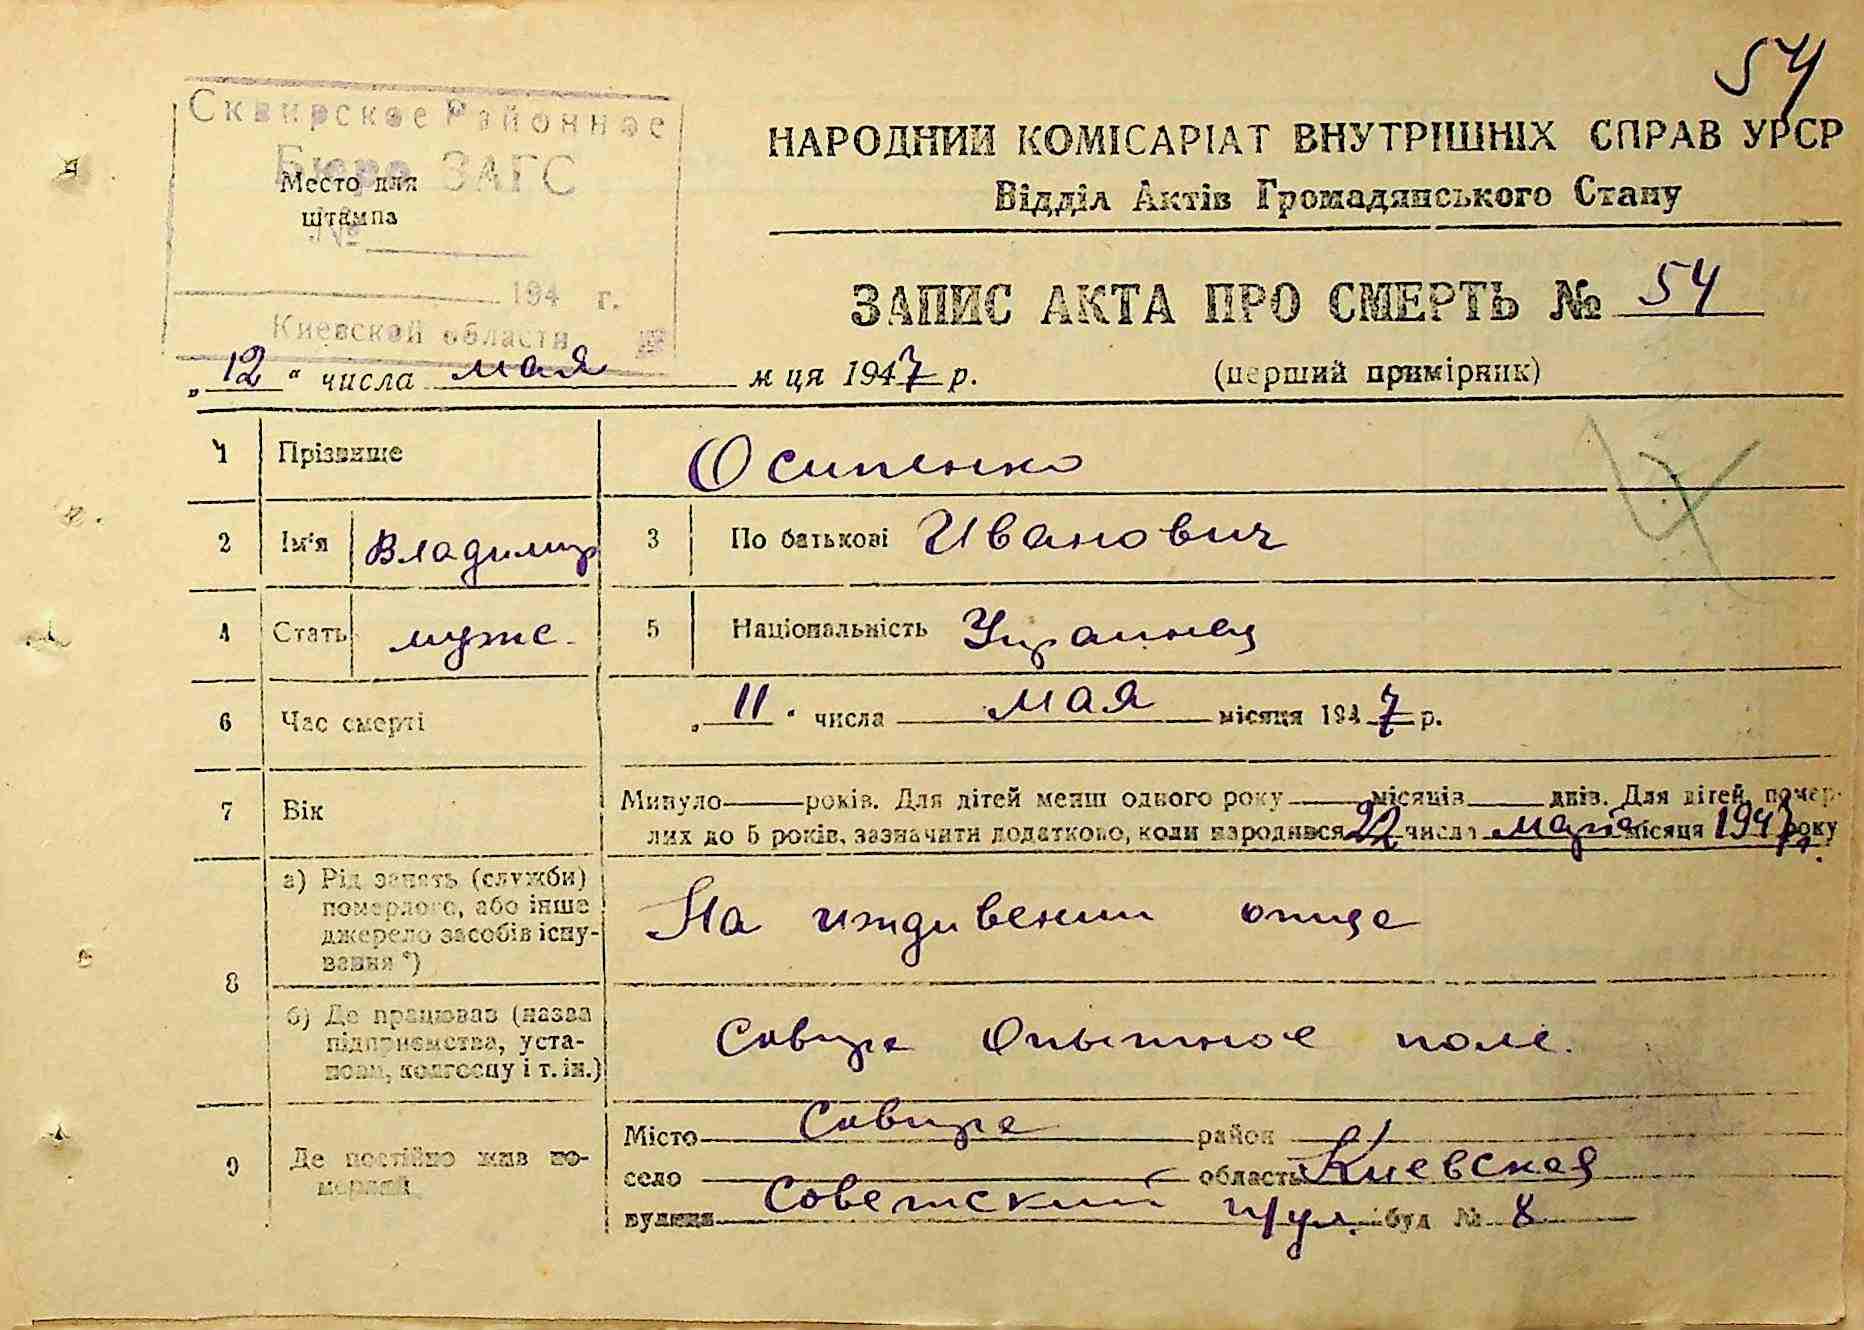 54
Сквирское Районное
Бюро ЗАГС
Место для
штампа
№
194 г.
Киевской области
НАРОДНИЙ КОМІСАРІАТ ВНУТРІШНІХ СПРАВ УРСР
Відділ Актів Громадянського Стану
ЗАПИС АКТА ПРО СМЕРТЬ № 54
„12“ числа мая м ця 1947 р. (перший примірник)
1 Прізвище Осипенко
2 Ім'я Владимир 3 По батькові Иванович
4 Стать мужс. 5 Національність Украинец
6 Час смерті „11“ числа мая місяця 1947 р.
7 Вік Минуло років. Для дітей менш одного року місяців днів. Для дітей, помер-
лих до 5 років, зазначити додатково, коли народився 22 числа місяця 1947 року
8 а) Рід занять (служби)
померлого, або інше
джерело засобів існу-
вання *)
На иждивении отца
б) Де працював (назва
підприємства, уста-
нови, колгоспу і т. ін.)
Сквира Опытное поле.
9 Де постійно жив по-
мерлий
Місто Сквира район
село область Киевская
вулиця Советский п/ул. буд № 8